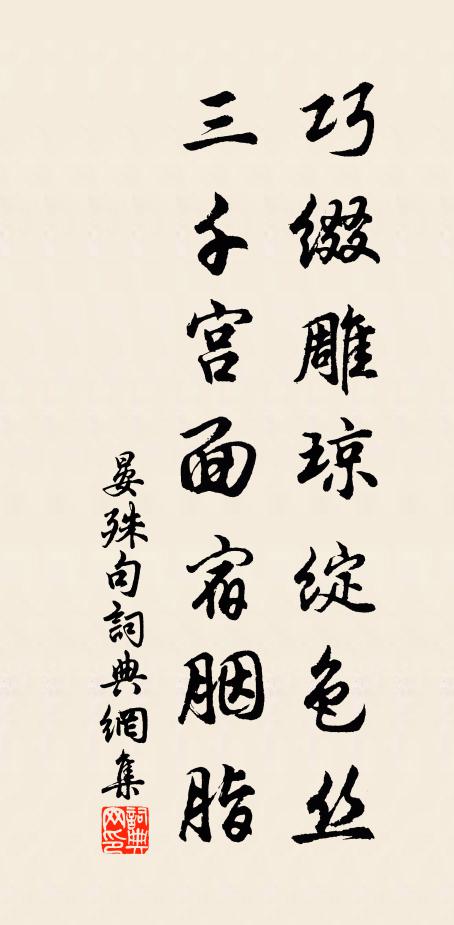 巧缀雕琼绽色丝
三千宫面宿胭脂
晏殊句詞典網集
詞典網印